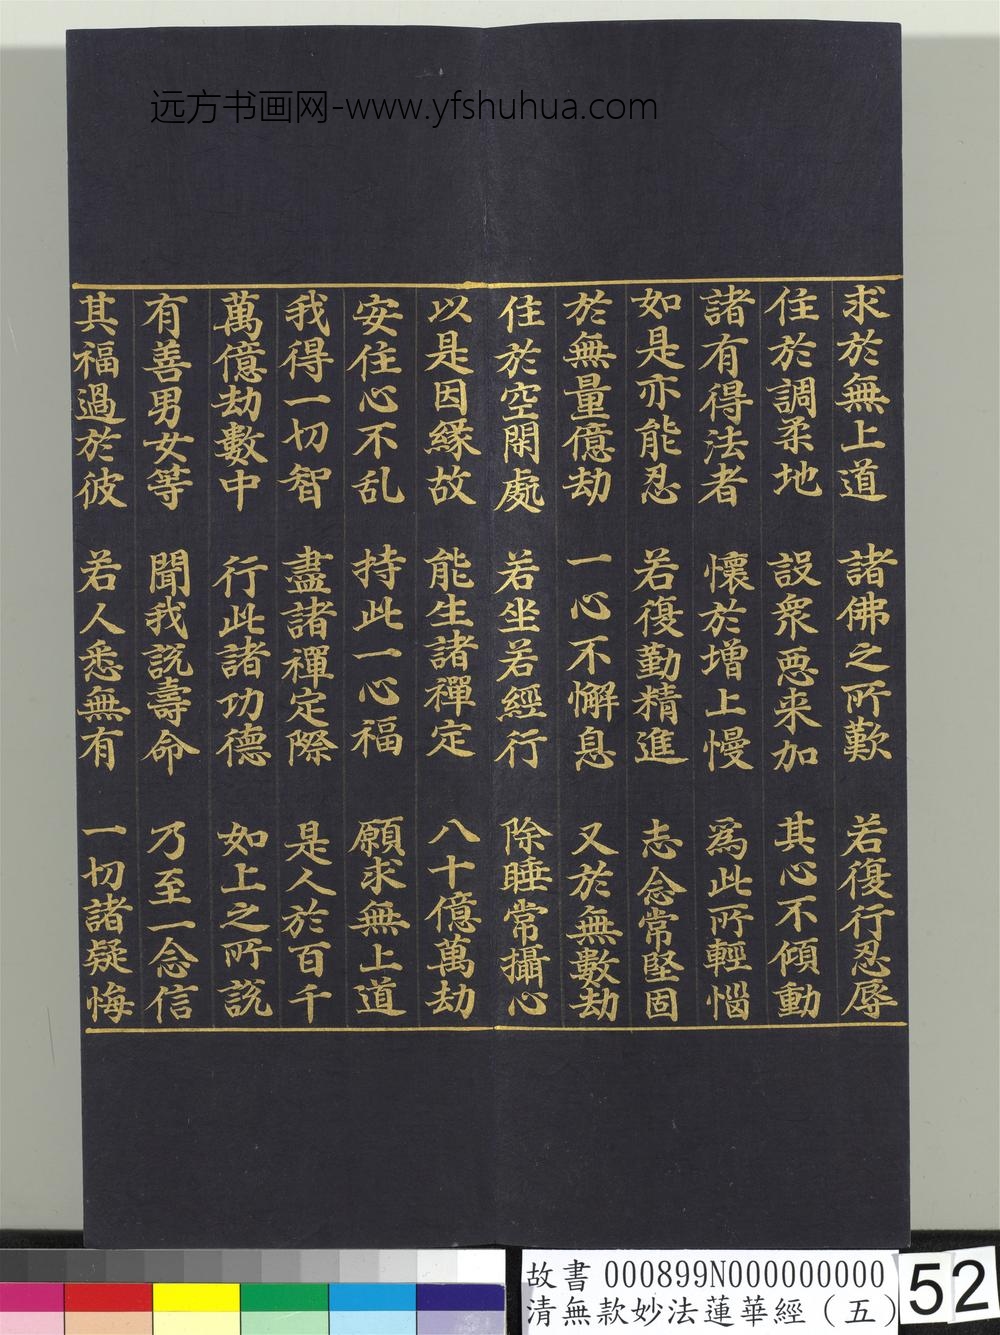 远方书画网-www.yfshuhua.com
求於無上道 諸佛之所歎 若復行忍辱
住於調柔地 設衆惡来加 其心不傾動
諸有得法者 懷於增上慢 爲此所輕惱
如是亦能忍 若復勤精進 志念常堅固
於無量億劫 一心不懈息 又於無數劫
住於空閑處 若坐若經行 除睡常攝心
以是因緣故 能生諸禪定 八十億萬劫
安住心不乱 持此一心福 願求無上道
我得一切智 盡諸禪定際 是人於百千
萬億劫數中 行此諸功德 如上之所說
有善男女等 聞我說壽命 乃至一念信
其福過於彼 若人悉無有 一切諸疑悔
故書 000899N000000000
清無款妙法蓮華經（五）
52